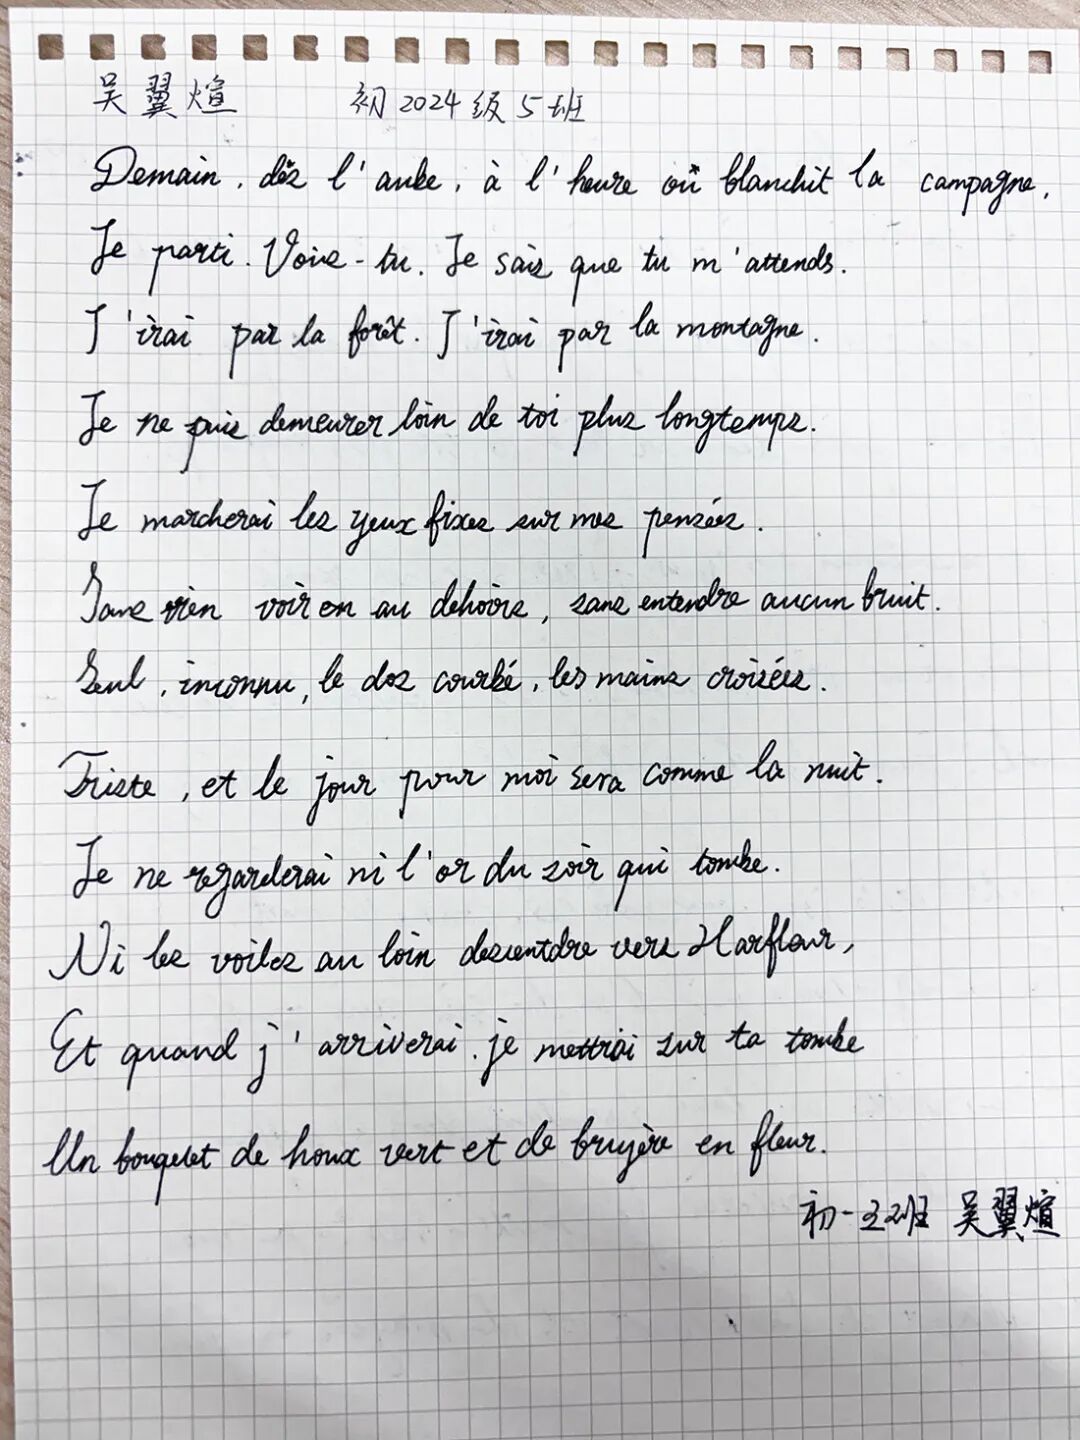 吴翼煊 初2024级5班
Demain, dès l'aube, à l'heure où blanchit la campagne,
Je parti. Vois-tu. Je sais que tu m'attends.
J'irai par la forêt. J'irai par la montagne.
Je ne puis demeurer loin de toi plus longtemps.
Je marcherai les yeux fixes sur mes pensées.
Sans rien voir en au dehoirs, sans entendre aucun bruit.
Seul, inconnu, le dos courbé, les mains croisées.
Triste, et le jour pour moi sera comme la nuit.
Je ne regarderai ni l'or du soir qui tombe.
Ni les voiles au loin descentdre vers Harfleur,
Et quand j'arriverai. je mettrai sur ta tombe
Un bouquet de houx vert et de bruyère en fleur.
初一5班 吴翼煊